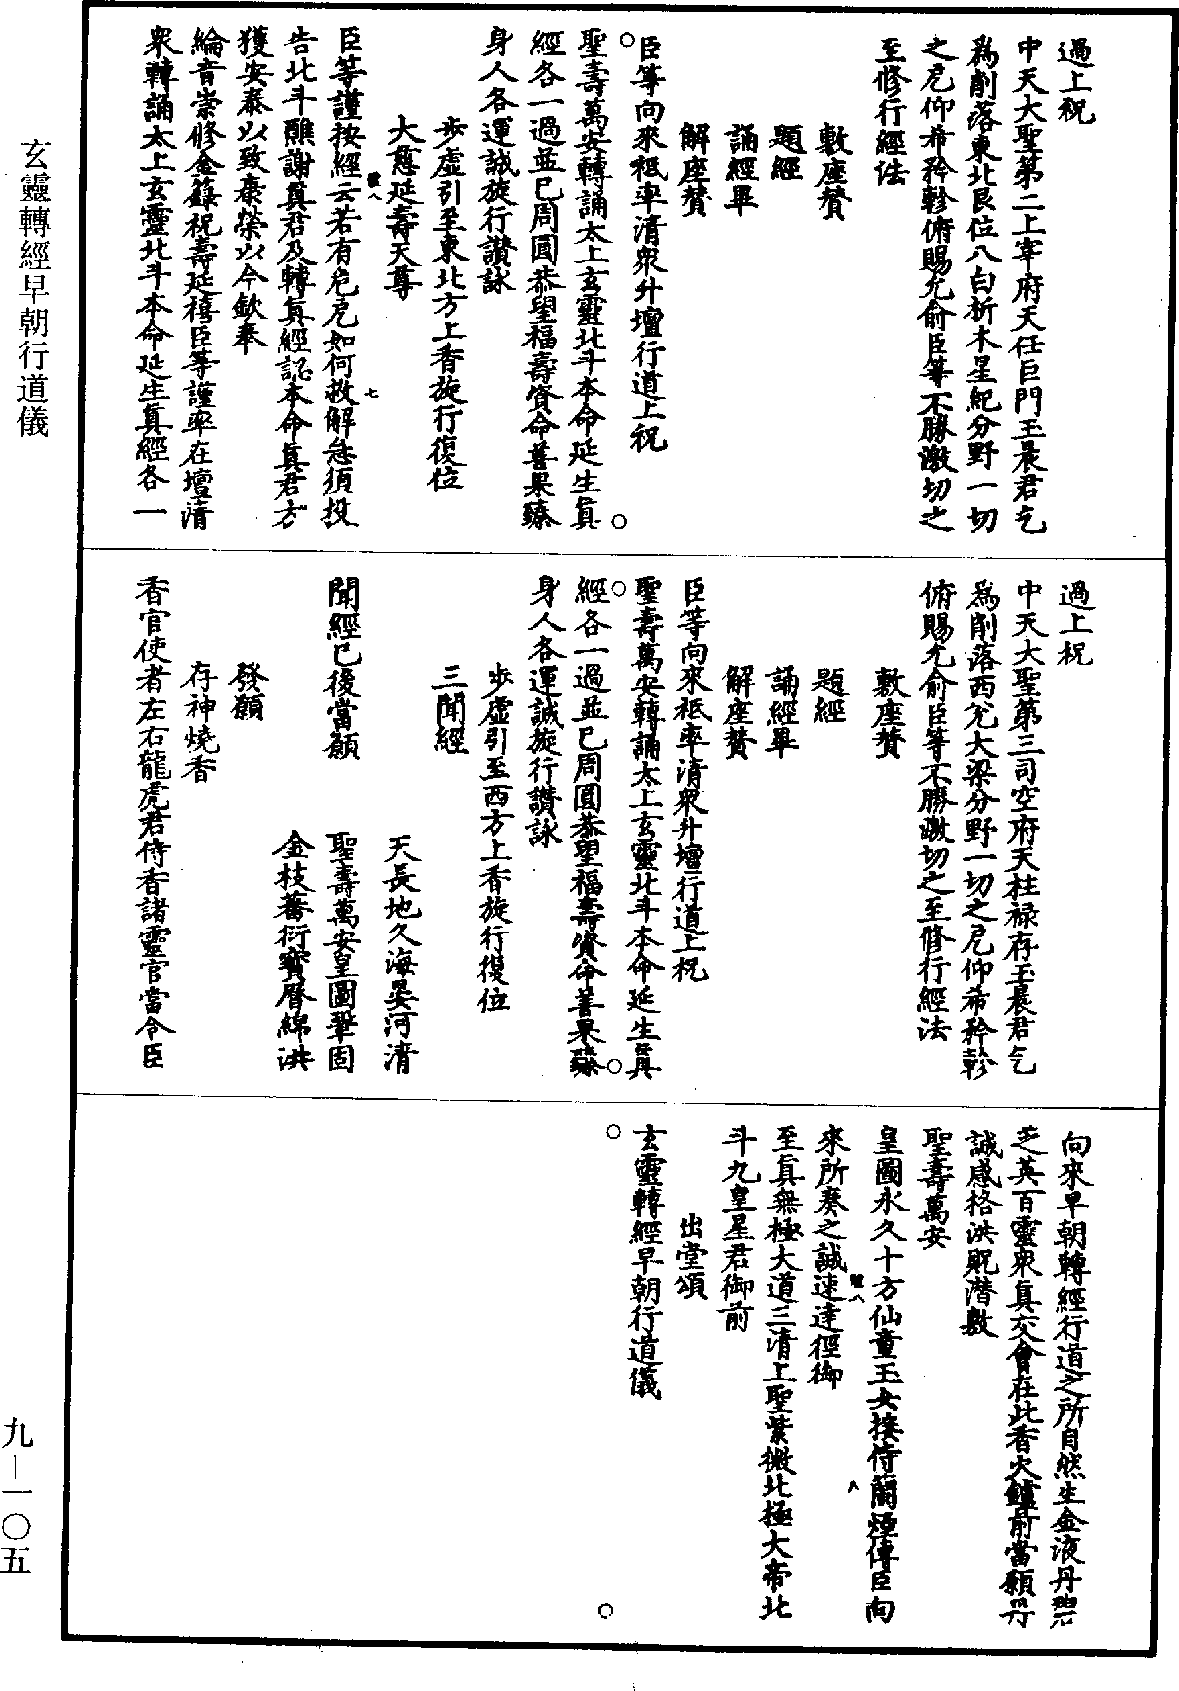 過上祝
中天大聖第二上宰府天任巨門玉晨君乞
爲削落東北艮位八白析木星紀分野一切
之厄仰希矜軫俯賜允俞臣等不勝激切之
至修行經法
敷座贊
題經
誦經畢
解座贊
臣等向來祗率清衆升壇行道上祝
聖壽萬安轉誦太上玄靈北斗本命延生眞
經各一過並已周圓恭望福壽資命善果臻
身人各運誠旋行讚詠
步虛引至東北方上香旋行復位
大慈延壽天尊
臣等謹按經云若有危厄如何救解急須投
告北斗醮謝眞君及轉眞經認本命眞君方
獲安泰以致康榮以今欽奉
綸音崇修金籙祝壽延禧臣等謹率在壇清
衆轉誦太上玄靈北斗本命延生眞經各一
過上祝
中天大聖第三司空府天柱祿存玉晨君乞
爲削落西兌大梁分野一切之厄仰希矜軫
俯賜允俞臣等不勝激切之至修行經法
敷座贊
題經
誦經畢
解座贊
臣等向來祗率清衆升壇行道上祝
聖壽萬安轉誦太上玄靈北斗本命延生眞
經各一過並已周圓恭望福壽資命善果臻
身人各運誠旋行讚詠
步虛引至西方上香旋行復位
三聞經
天長地久海晏河清
聞經已後當願 聖壽萬安皇圖鞏固
金枝蕃衍寶曆綿洪
發願
存神燒香
香官使者左右龍虎君侍香諸靈官當令臣
向來早朝轉經行道之所自然生金液丹碧
芝英百靈衆眞交會在此香火鑪前當願丹
誠感格洪貺潛敷
聖壽萬安
皇圖永久十方仙童玉女接侍蘭煙傳臣向
來所奏之誠速達徑御
至眞無極大道三清上聖紫微北極大帝北
斗九皇星君御前
出堂頌
玄靈轉經早朝行道儀
玄靈轉經早朝行道儀
九—一〇五